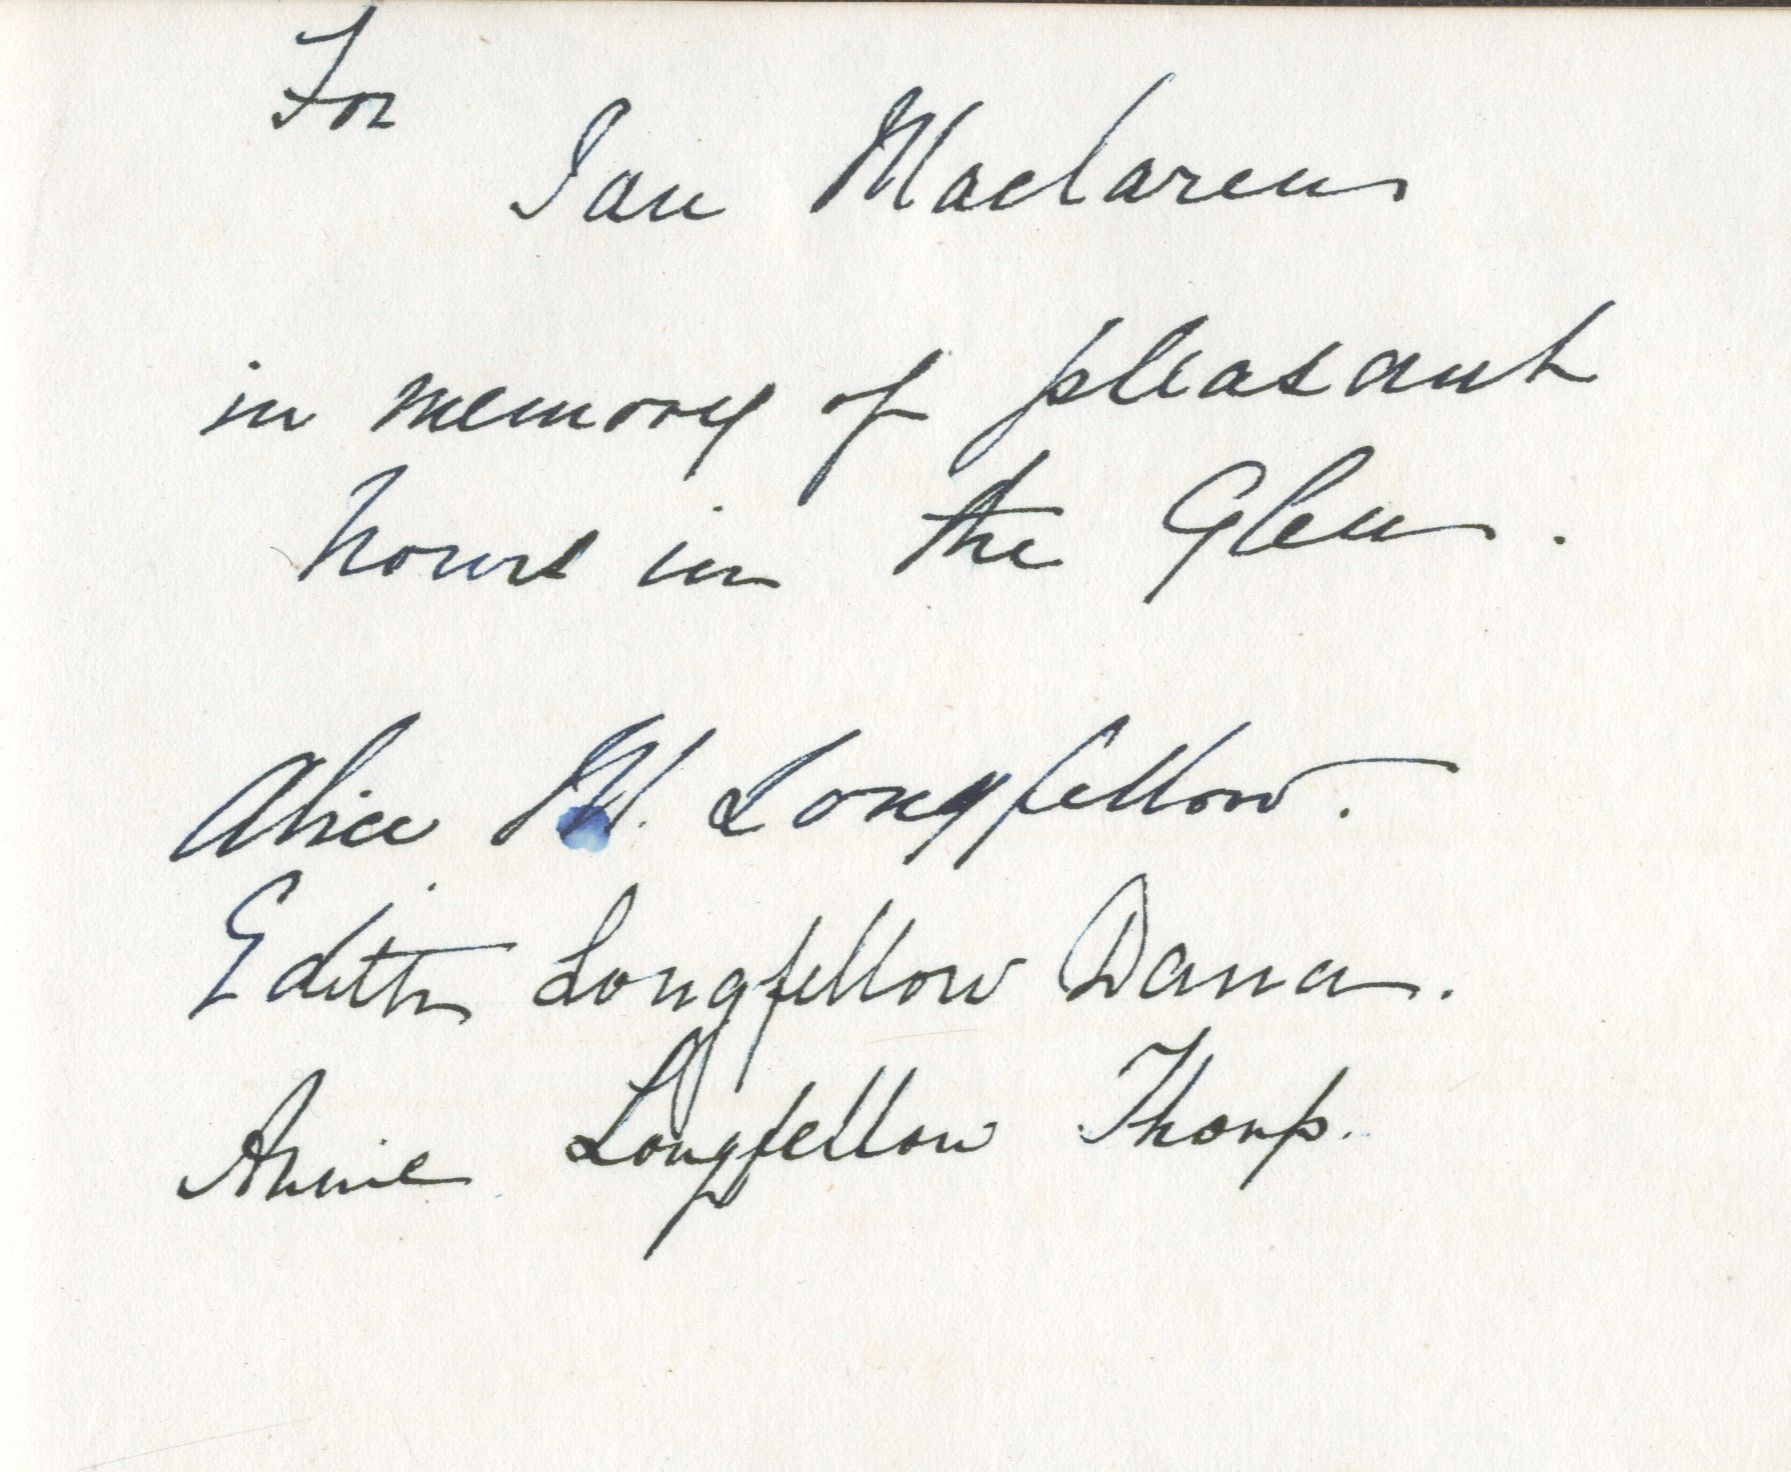 For
Ian Maclaren
in memory of pleasant
hours in the Glen.
Alice M. Longfellow.
Edith Longfellow Dana.
Annie Longfellow Thorp.